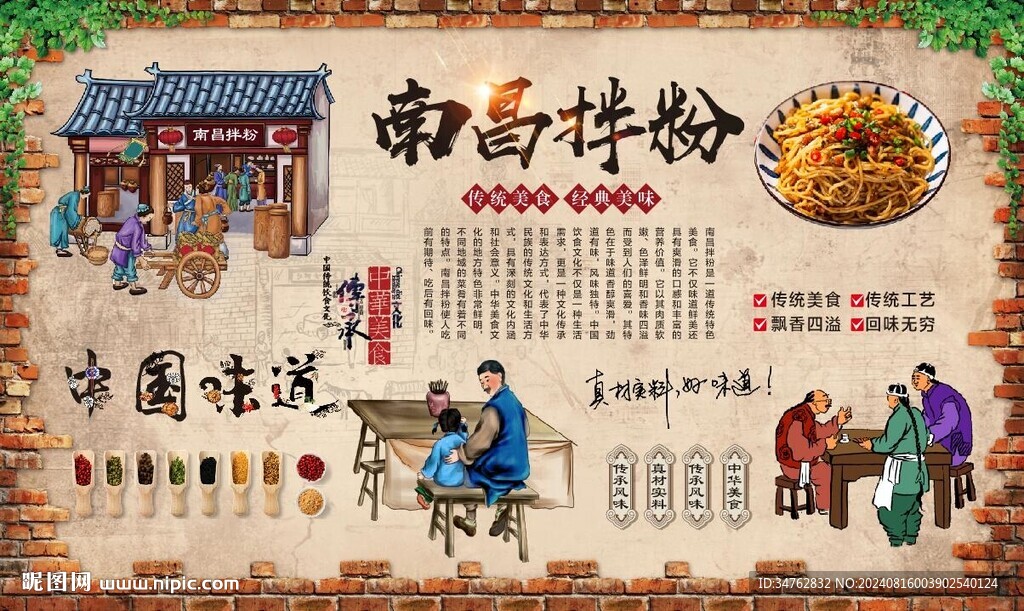 南昌拌粉
南昌拌粉
传统美食 经典美味
南昌拌粉是一道传统特色
美食。它不仅味道鲜美还
具有爽滑的口感和丰富的
营养价值。它以其肉质软
嫩、色泽鲜明和香味四溢
而受到人们的喜爱。其特
色在于味道香醇爽滑，劲
道有味，风味独特。中国
饮食文化不仅是一种生活
需求，更是一种文化传承
和表达方式，代表了中华
民族的传统文化和生活方
式，具有深刻的文化内涵
和社会意义。中华美食文
化的地方特色非常鲜明，
不同地域的菜肴有着不同
的特点。南昌拌粉使人吃
前有期待、吃后有回味。
传统美食
传统工艺
飘香四溢
回味无穷
中国传统饮食文化
传承
中華美食
文化
中国味道
真材实料,好味道!
传承风味
真材实料
传承风味
中华美食
昵图网 www.nipic.com
ID:34762832 NO:20240816003902540124